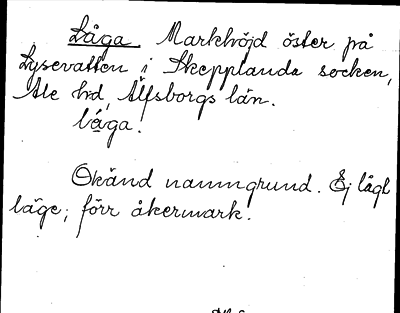 Låga Markhöjd öster på
Lysevatten i Skepplanda socken,
Ale hd, Älfsborgs län.
låga.
Okänd namngrund. Ej lågt
läge; förr åkermark.